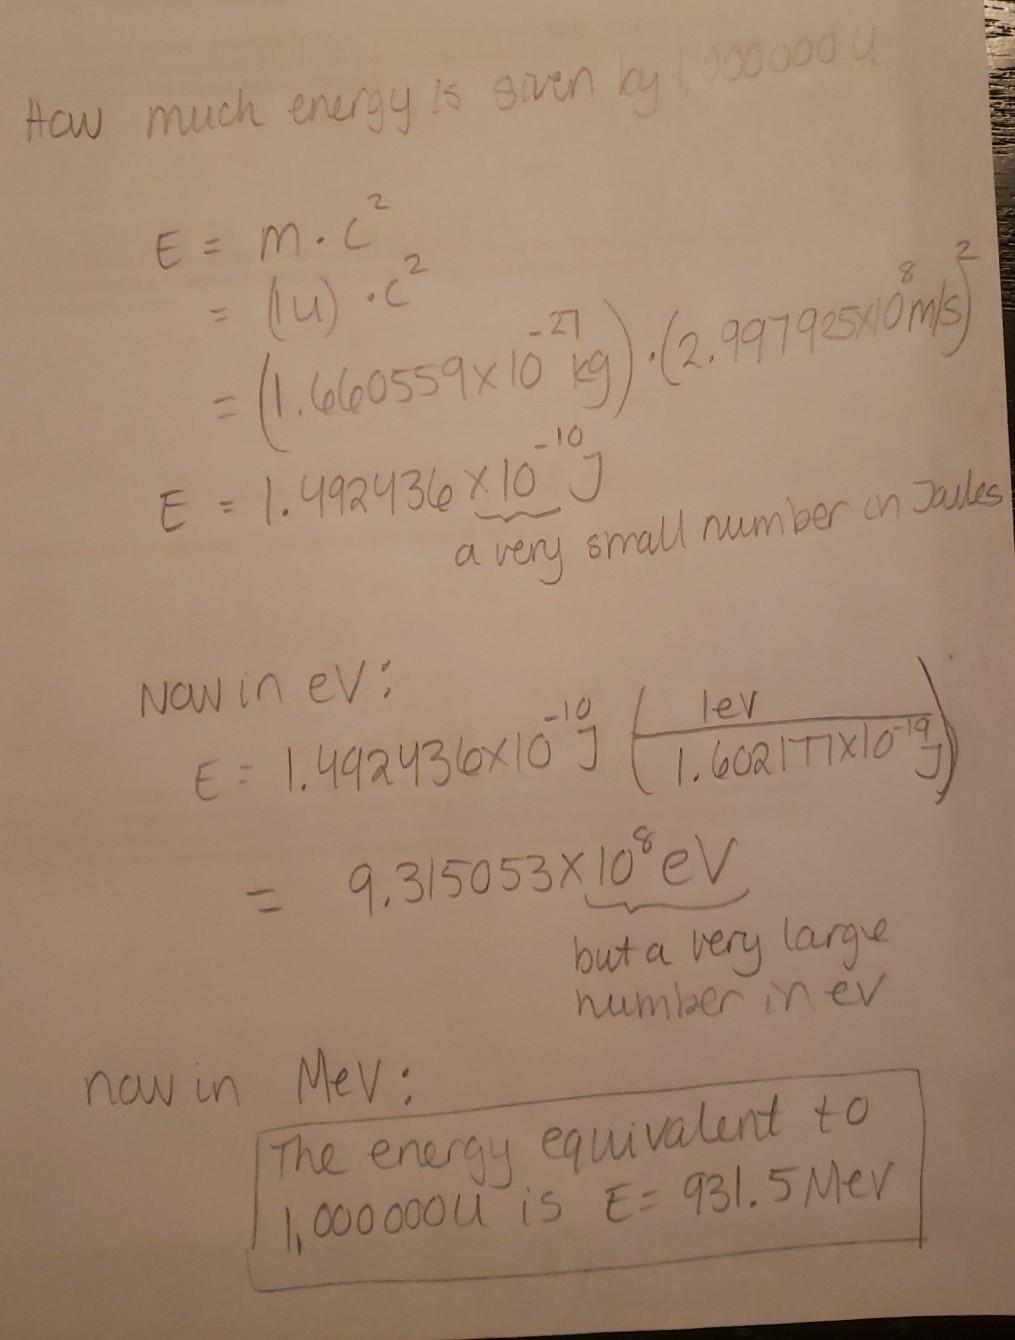 How much energy is given by 1.000000u
E = m · c²
= (1u) · c²
= (1.660559 × 10⁻²⁷ kg) · (2.997925×10⁸ m/s)²
E = 1.492436 × 10⁻¹⁰ J
a very small number in Joules
Now in eV:
E = 1.492436×10⁻¹⁰ J (1ev / 1.602177×10⁻¹⁹ J)
= 9.315053×10⁸ eV
but a very large
number in ev
now in MeV:
The energy equivalent to
1,000000u is E= 931.5 MeV